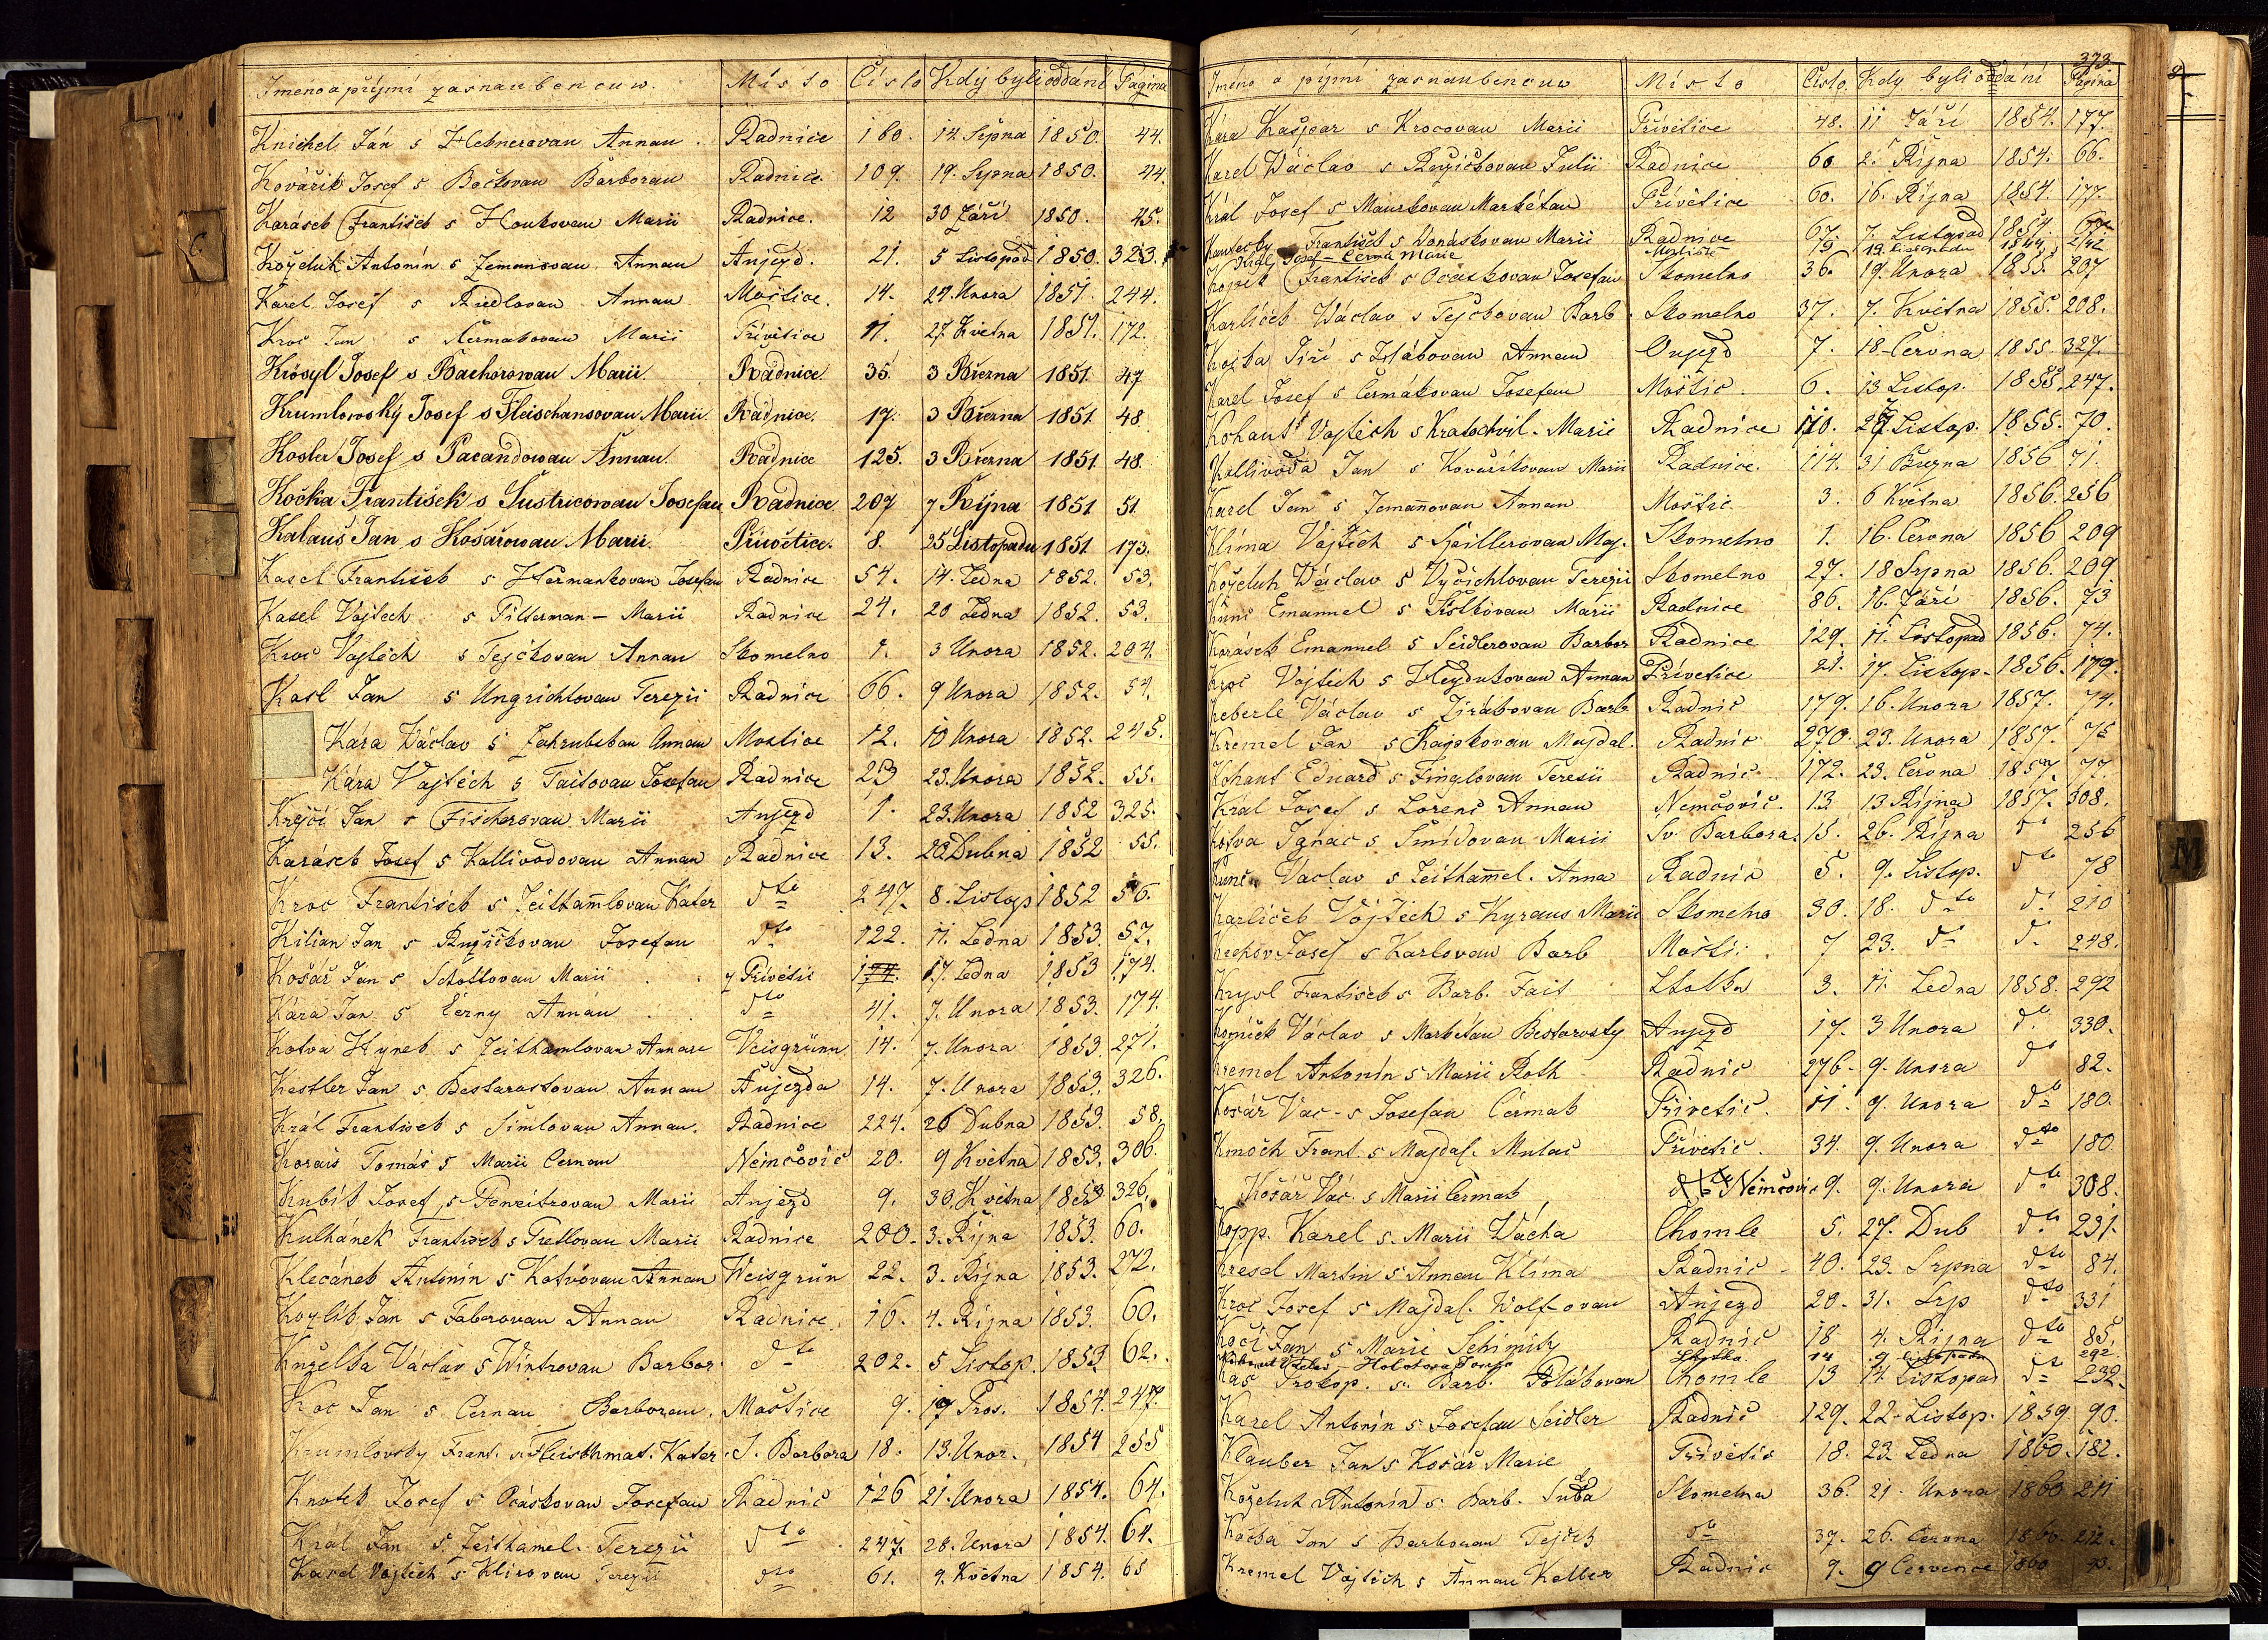 Jméno a přijmí zasnaubencuw. Místo Číslo Kdý byli oddáni Pagina
Knichel Ján s Hebnerovau Annau. Radnice 160. 14 Srpna 1850. 44.
Kovářik Josef s Bečkovau Barborau Radnice. 109. 19. Srpna 1850. 44.
Karásek František s Haukovau Marii Radnice. 12 30 Září 1850. 45.
Koželuh Antonín s Zemanovau Annau Aujezd. 21. 5 Listopad 1850. 323.
Karel Josef s Riedlovau Annau Moštice. 14. 24. Unora 1851. 244.
Kroc Jan s Čermakovau Marii Přívětice 11. 27 Května 1851. 172.
Krösyl Josef s Bachorowau Marii. Radnice. 35. 3 Března 1851. 47
Krumlowský Josef s Fleischansovau Marii Radnice. 17. 3 Března 1851 48
Kosler Josef s Parandowau Annau. Radnice 125. 3 Března 1851 48.
Kočka František s Šustricowau Josefau Radnice 207 7 Října 1851 51.
Kalauš Jan s Košařowau Marii. Přiwětice. 8. 25 Listopadu 1851 173.
Kasel František s Heřmankovau Josefau Radnice 54. 14. Ledna 1852. 53.
Kasel Vojtěch s Pilserman - Marii Radnice 24. 20 Ledna 1852. 53.
Kroc Vojtěch s Tejčkovau Annau Skomelno 1. 3 Unora 1852. 204.
Kasl Jan s Ungrichtovau Terezii Radnice 66. 9 Unora 1852. 54.
Kára Václav s Zahrubskau Annau Mostice 12. 10 Unora 1852. 245.
Kára Vojtěch s Faitovau Josefau Radnice 23 23. Unora 1852. 55.
Krejčí Jan s Fischerovau Marii Aujezd 1. 23. Unora 1852 325.
Karásek Josef s Kallivodovau Annau Radnice 13. 20 Dubna 1852 55.
Kroc František s Zeithamlovau Kater dto 247. 8. Listop 1852 56.
Kilian Jan s Ružičkovau Josefau dto 122. 11. Ledna 1853. 57.
Košář Jan s Schottovau Marii z Přívětic 17. Ledna 1853 174.
Kára Jan s Černy Annau dto 41. 7. Unora 1853. 174.
Kotva Hynek s Zeithamlovau Annau Veisgrünn 14. 7. Unora 1853. 271.
Kestler Jan s Bestarostovau Annau Aujezda 14. 7. Unora 1853. 326.
Král František s Šimlovau Annau. Radnice 224. 26 Dubna 1853. 58.
Korais Tomáš s Marii Černau Němčovic 20. 9 Května 1853. 306.
Kubík Josef s Peneitrovau Marii Aujezd 9. 30. Května 1853 326.
Kulhánek František s Tretlovau Marii Radnice 200. 3. Října 1853. 60.
Klecánek Antonín s Kotvovau Annau Weisgrün 22. 3. Října 1853. 272.
Kozlík Jan s Faberovau Annau Radnice. 16. 4. Října 1853. 60.
Kuželka Václav s Wintrovau Barbor. dto 202. 5 Listop. 1853 62.
Koc Jan s Černau Barborau. Moštice 9. 17 Pros. 1854. 247.
Krumlovsky Frant. s Fleischmat. Kater. S. Barbora 18. 13. Unor. 1854 255
Knotek Josef s Ocáskovau Josefau Radnic 126 21. Unora 1854. 64.
Král Jan s Zeithamel. Terezii dto 247. 28. Unora 1854. 64.
Karel Vojtěch s Klirovau Terezii dto 61. 9. Května 1854. 65
373
Jméno a přijmí zasnaubencuw Místo Číslo. Kdy byli oddáni Pagina
Kára Kašpar s Krocovau Marii Přívětice 48. 11 Září 1854. 177.
Karel Václav s Ružičkovau Julii Radnice 60 2. Října 1854. 66.
Král Josef s Maurkovau Markétau Přívětice 60. 16. Října 1854. 177.
František s Vonáskovau Marii Radnice 67. 7. Listopad 1854.
Josef - Černá Marie 19 19. Listopadu
Kopek František s Ocáskovau Josefau Skomelno 36. 19. Unora 1855. 207
Karlíček Václav s Tejčkovau Barb. Skomelno 37. 7. Května 1855. 208.
Kozba Jiří s Hlábovau Annau Oujezd 7. 18 Června 1855. 327.
Karel Josef s Čermákovau Josefau Moštic. 6. 13 Listop. 1855. 247.
Kohaut Vojtěch s Kratochvil. Marii Radnice 110. 27. Listop. 1855. 70.
Kallivoda Jan s Kovaříkovau Marii Radnice. 114. 31 Března 1856 71.
Karel Jan s Zemanovau Annau Moštic. 3. 6 Května 1856. 256
Klíma Vojtěch s Spillerovau Maj. Skomelno 1. 16. Června 1856 209
Koželuh Václav s Vyčichlovau Terezii Skomelno 27. 18 Srpna 1856. 209
Kunc Emanuel s Fistkovau Marii Radnice 86. 16. Září 1856. 73
Karásek Emanuel s Seidlerovau Barbor Radnice 129. 11. Listopad 1856. 74.
Kroc Vojtěch s Hejdukovau Annau Přívětice 21. 17. Listop. 1856. 179.
Keberle Václav s Jirákovau Barb. Radnic 179. 16. Unora 1857. 74.
Kremel Jan s Rajskovau Majdal. Radnic 270. 23. Unora 1857. 75
Kohaut Eduard s Finglovau Teresii Radnic 172. 23. Června 1857. 77.
Král Josef s Lorenc Annau Němčovic. 13. 13. Října 1857. 308.
Kotva Ignac s Šmídovau Marii Sv. Barbora. 15. 26. Října dto 256
Kunc Václav s Zeithamel. Anna Radnic 5. 9. Listop. dto 78
Karlíček Vojtěch s Kyraus Marii Skomelno 30. 18. dto dto 210
Kechov Josef s Karlovau Barb Mošti: 7 23. dto dto 248.
Krysl František s Barb. Fait Lhotka 3. 11. Ledna 1858. 292
Komíček Václav s Markétau Bestarosty Aujezd 17. 3 Unora dto 330.
Kremel Antonín s Marii Roth Radnic 276. 9. Unora dto 82.
Košář Vac. s Josefau Čermak Přívetic. 11. 9. Unora dto 180.
Kmoch Frant. s Majdal. Mulač Přívetic. 34. 9. Unora dto 180
Košář Vác. s Marii Čermak Němčovic 9. 9. Unora dto 308.
Kopp. Karel s. Marii Vácha Chomle 5. 27. Dub dto 231.
Kresel Martin s Annau Klíma Radnic 40. 23. Srpna dto 84.
Kroc Josef s Majdal. Wolf-ovau Aujezd 20. 31. Srp dto 331
Kočí Jan s Marii Schimity Radnic 18 4. Října dto 85.
Holotova Lhotka. 14 9 listopadu 292
Kas Prokop. s. Barb. Polákovau Chomle 13 14. Listopad dto 232.
Karel Antonín s Josefau Seidler Radnic 129. 22. Listop. 1859 90.
Klauber Jan s Košář Marie Přívětic 18. 23. Ledna 1860. 182.
Koželuh Antonín s. Barb. Suda Skomelna 36. 21. Unora 1860 211
Kočka Jan s Barborau Tejček dto 37. 26. Června 1860. 212.
Kremel Vojtěch s Annau Keller Radnic 9. 9 Července 1860
M